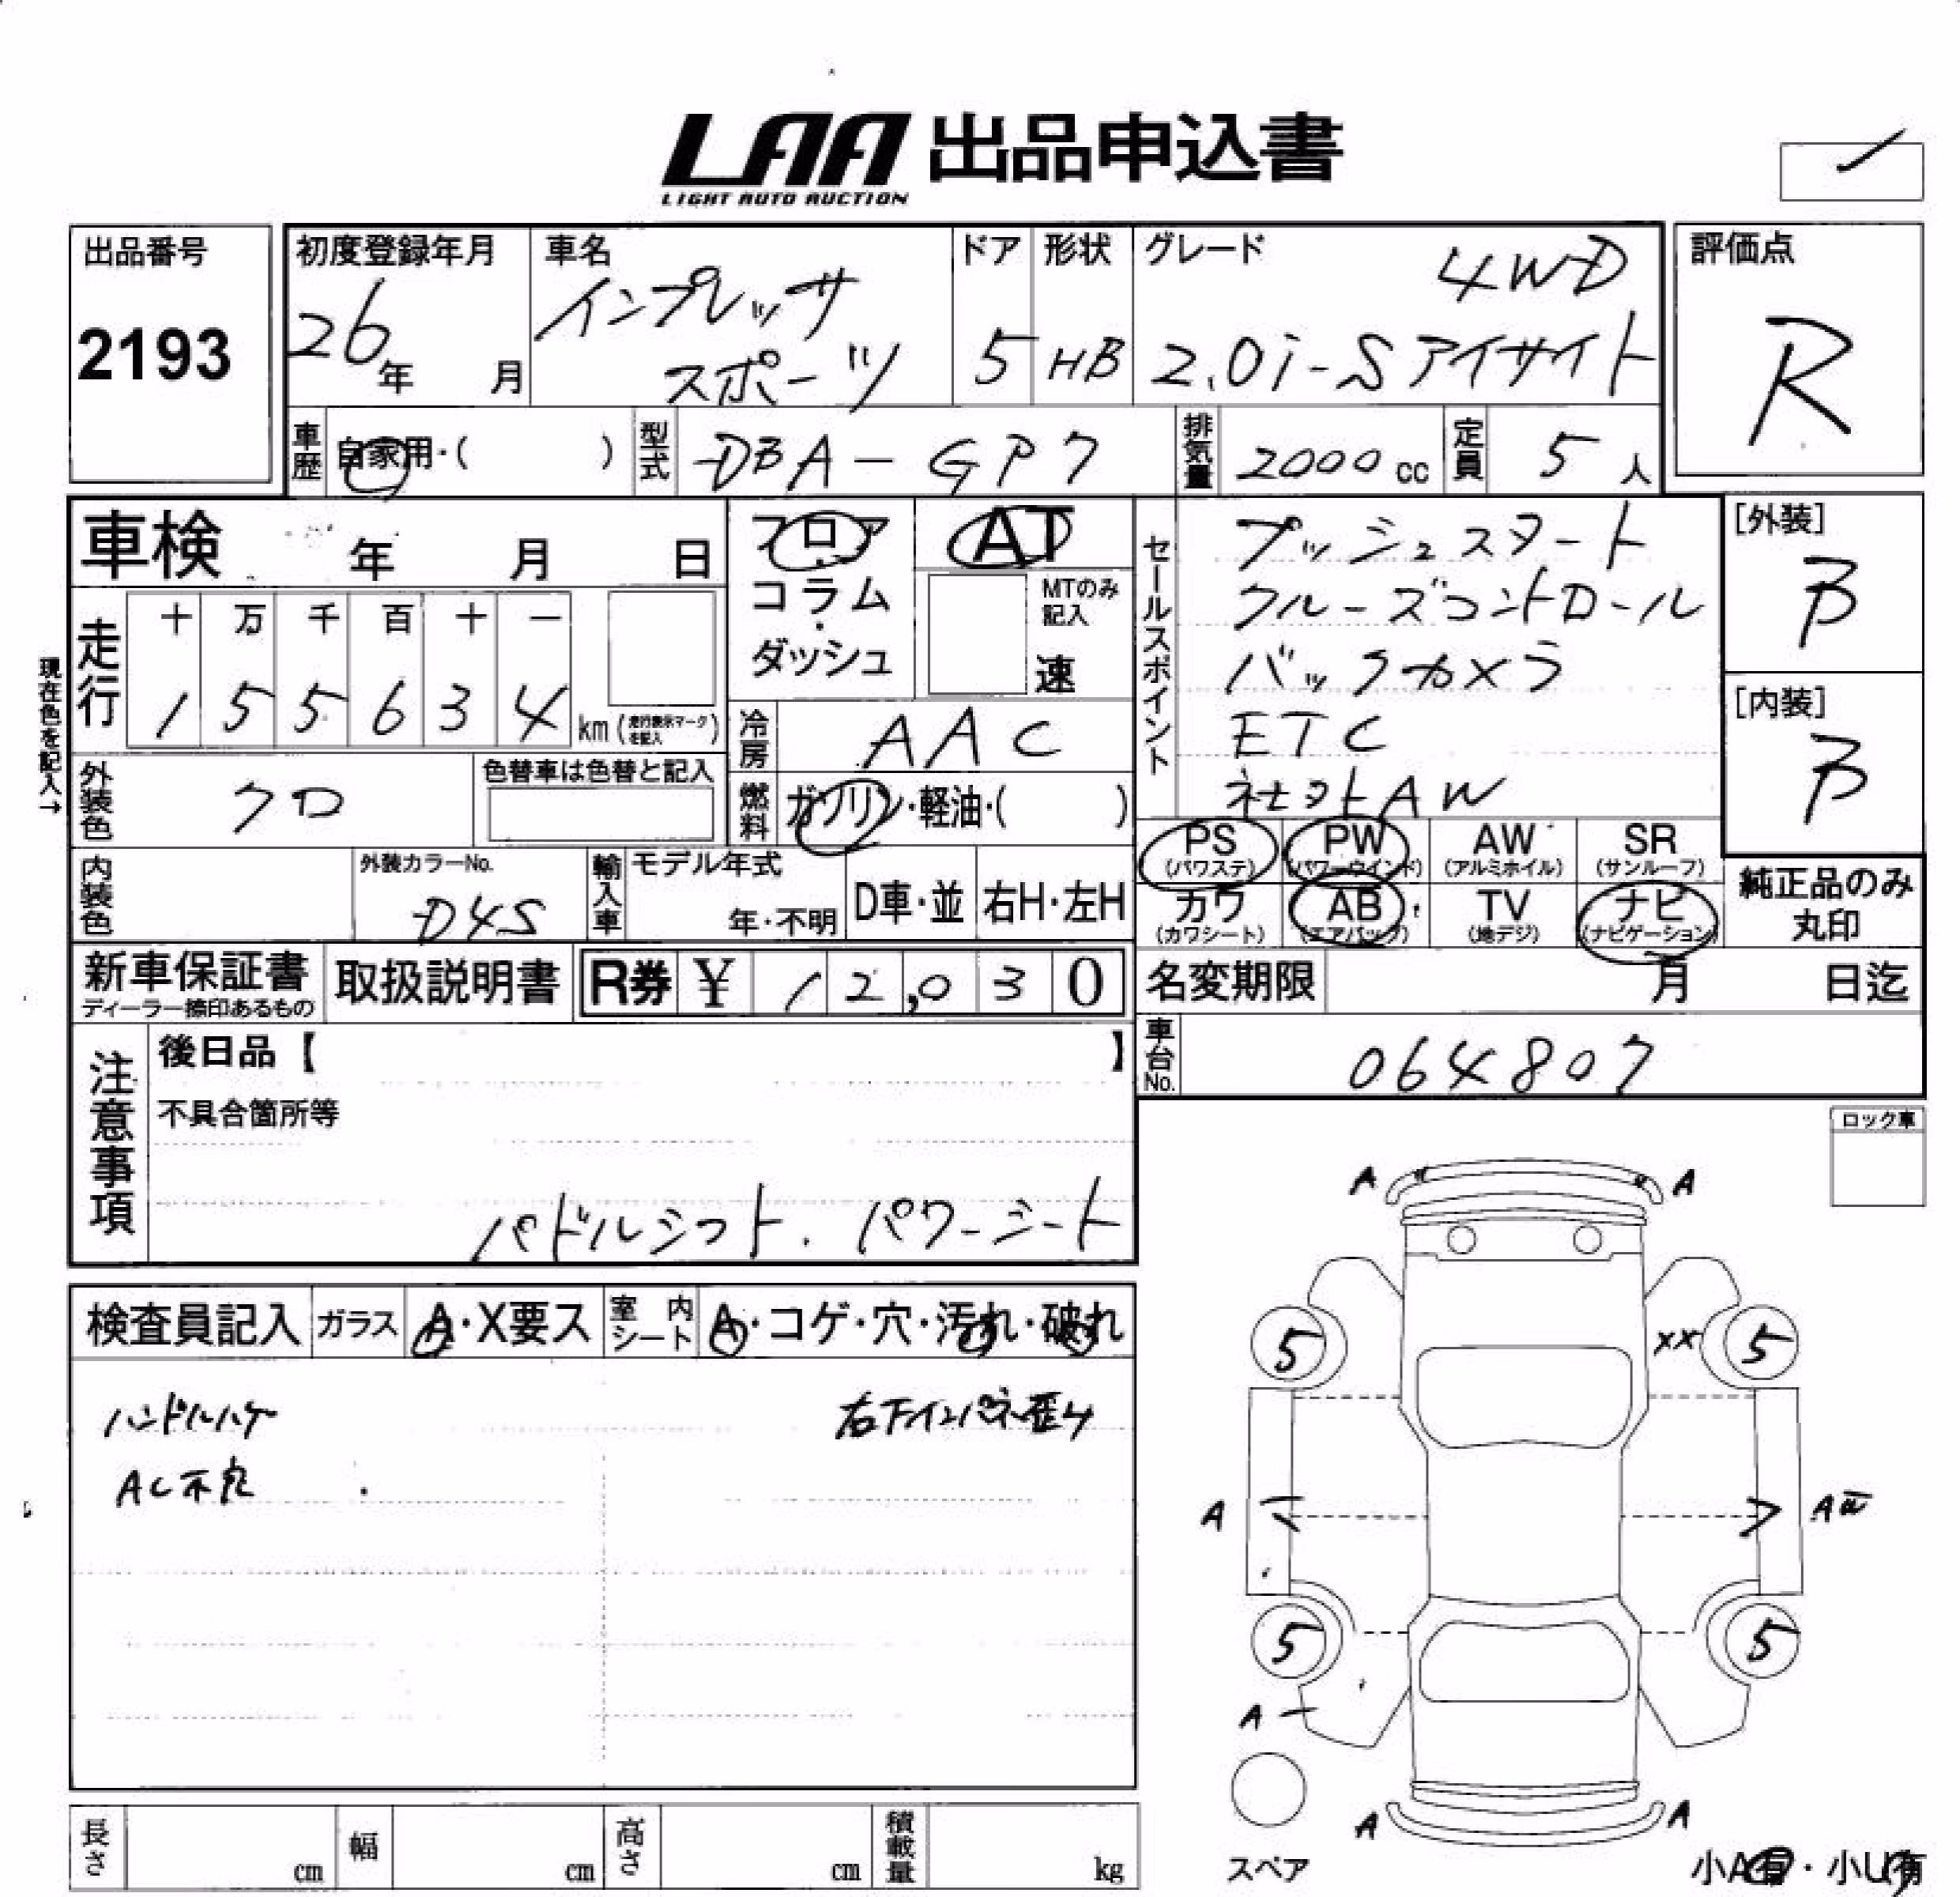 LAA 出品申込書
LIGHT AUTO AUCTION
出品番号
2193
初度登録年月
26年 月
車名
インプレッサ
スポーツ
ドア
5
形状
HB
グレード
4WD
2.0i-Sアイサイト
評価点
R
車歴
自家用・( )
型式
DBA-GP7
排気量
2000cc
定員
5人
車検 年 月 日
フロア
コラム
ダッシュ
AT
MTのみ
記入
速
セールスポイント
プッシュスタート
クルーズコントロール
バックカメラ
ETC
社外AW
[外装]
B
[内装]
B
現在色を記入→
走行
十 万 千 百 十 一
1 5 5 6 3 4 km(走行表示マークを記入)
冷房
AAC
外装色
クロ
色替車は色替と記入
燃料
ガソリン・軽油・( )
PS
(パワステ)
PW
(パワーウインド)
AW
(アルミホイル)
SR
(サンルーフ)
カワ
(カワシート)
AB
(エアバッグ)
TV
(地デジ)
ナビ
(ナビゲーション)
純正品のみ
丸印
内装色
外装カラーNo.
D4S
輸入車
モデル年式
年・不明
D車・並
右H・左H
新車保証書
ディーラー捺印あるもの
取扱説明書
R券 ¥ 12,030
名変期限 月 日迄
車台No.
064807
注意事項
後日品【 】
不具合箇所等
パドルシフト. パワーシート
ロック車
検査員記入
ガラス
A・X要ス
室内シート
A・コゲ・穴・汚れ・破れ
ハンドルハゲ
右下インパネ歪み
AC不良
A A
5 XX 5
A
5 5
A
A A
スペア
小A有・小U有
長さ cm
幅 cm
高さ cm
積載量 kg